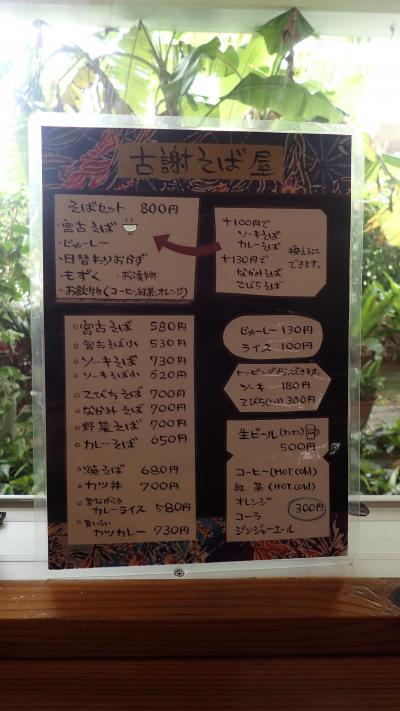 古謝そば屋
そばセット 800円
・宮古そば
・じゅーしー
・日替わりおかず
・もずく ・お漬物
・お飲物(コーヒー,紅茶,オレンジ)
+100円で
ソーキそば
カレーそば
+130円で
なかみそば
てびちそば
換えることできます。
○宮古そば 580円
○宮古そば小 530円
○ソーキそば 730円
○ソーキそば小 620円
○てびちそば 700円
○なかみそば 700円
○野菜そば 700円
○カレーそば 650円
○焼そば 680円
○カツ丼 700円
○昔ながらの
カレーライス 580円
○黄いろい
カツカレー 730円
じゅーしー 130円
ライス 100円
トッピングプラスできます。
ソーキ 180円
てびち(1コ) 300円
生ビール(オリオン)
500円
コーヒー(HOT.cold)
紅茶(HOT.cold)
オレンジ
コーラ
ジンジャーエール
300円